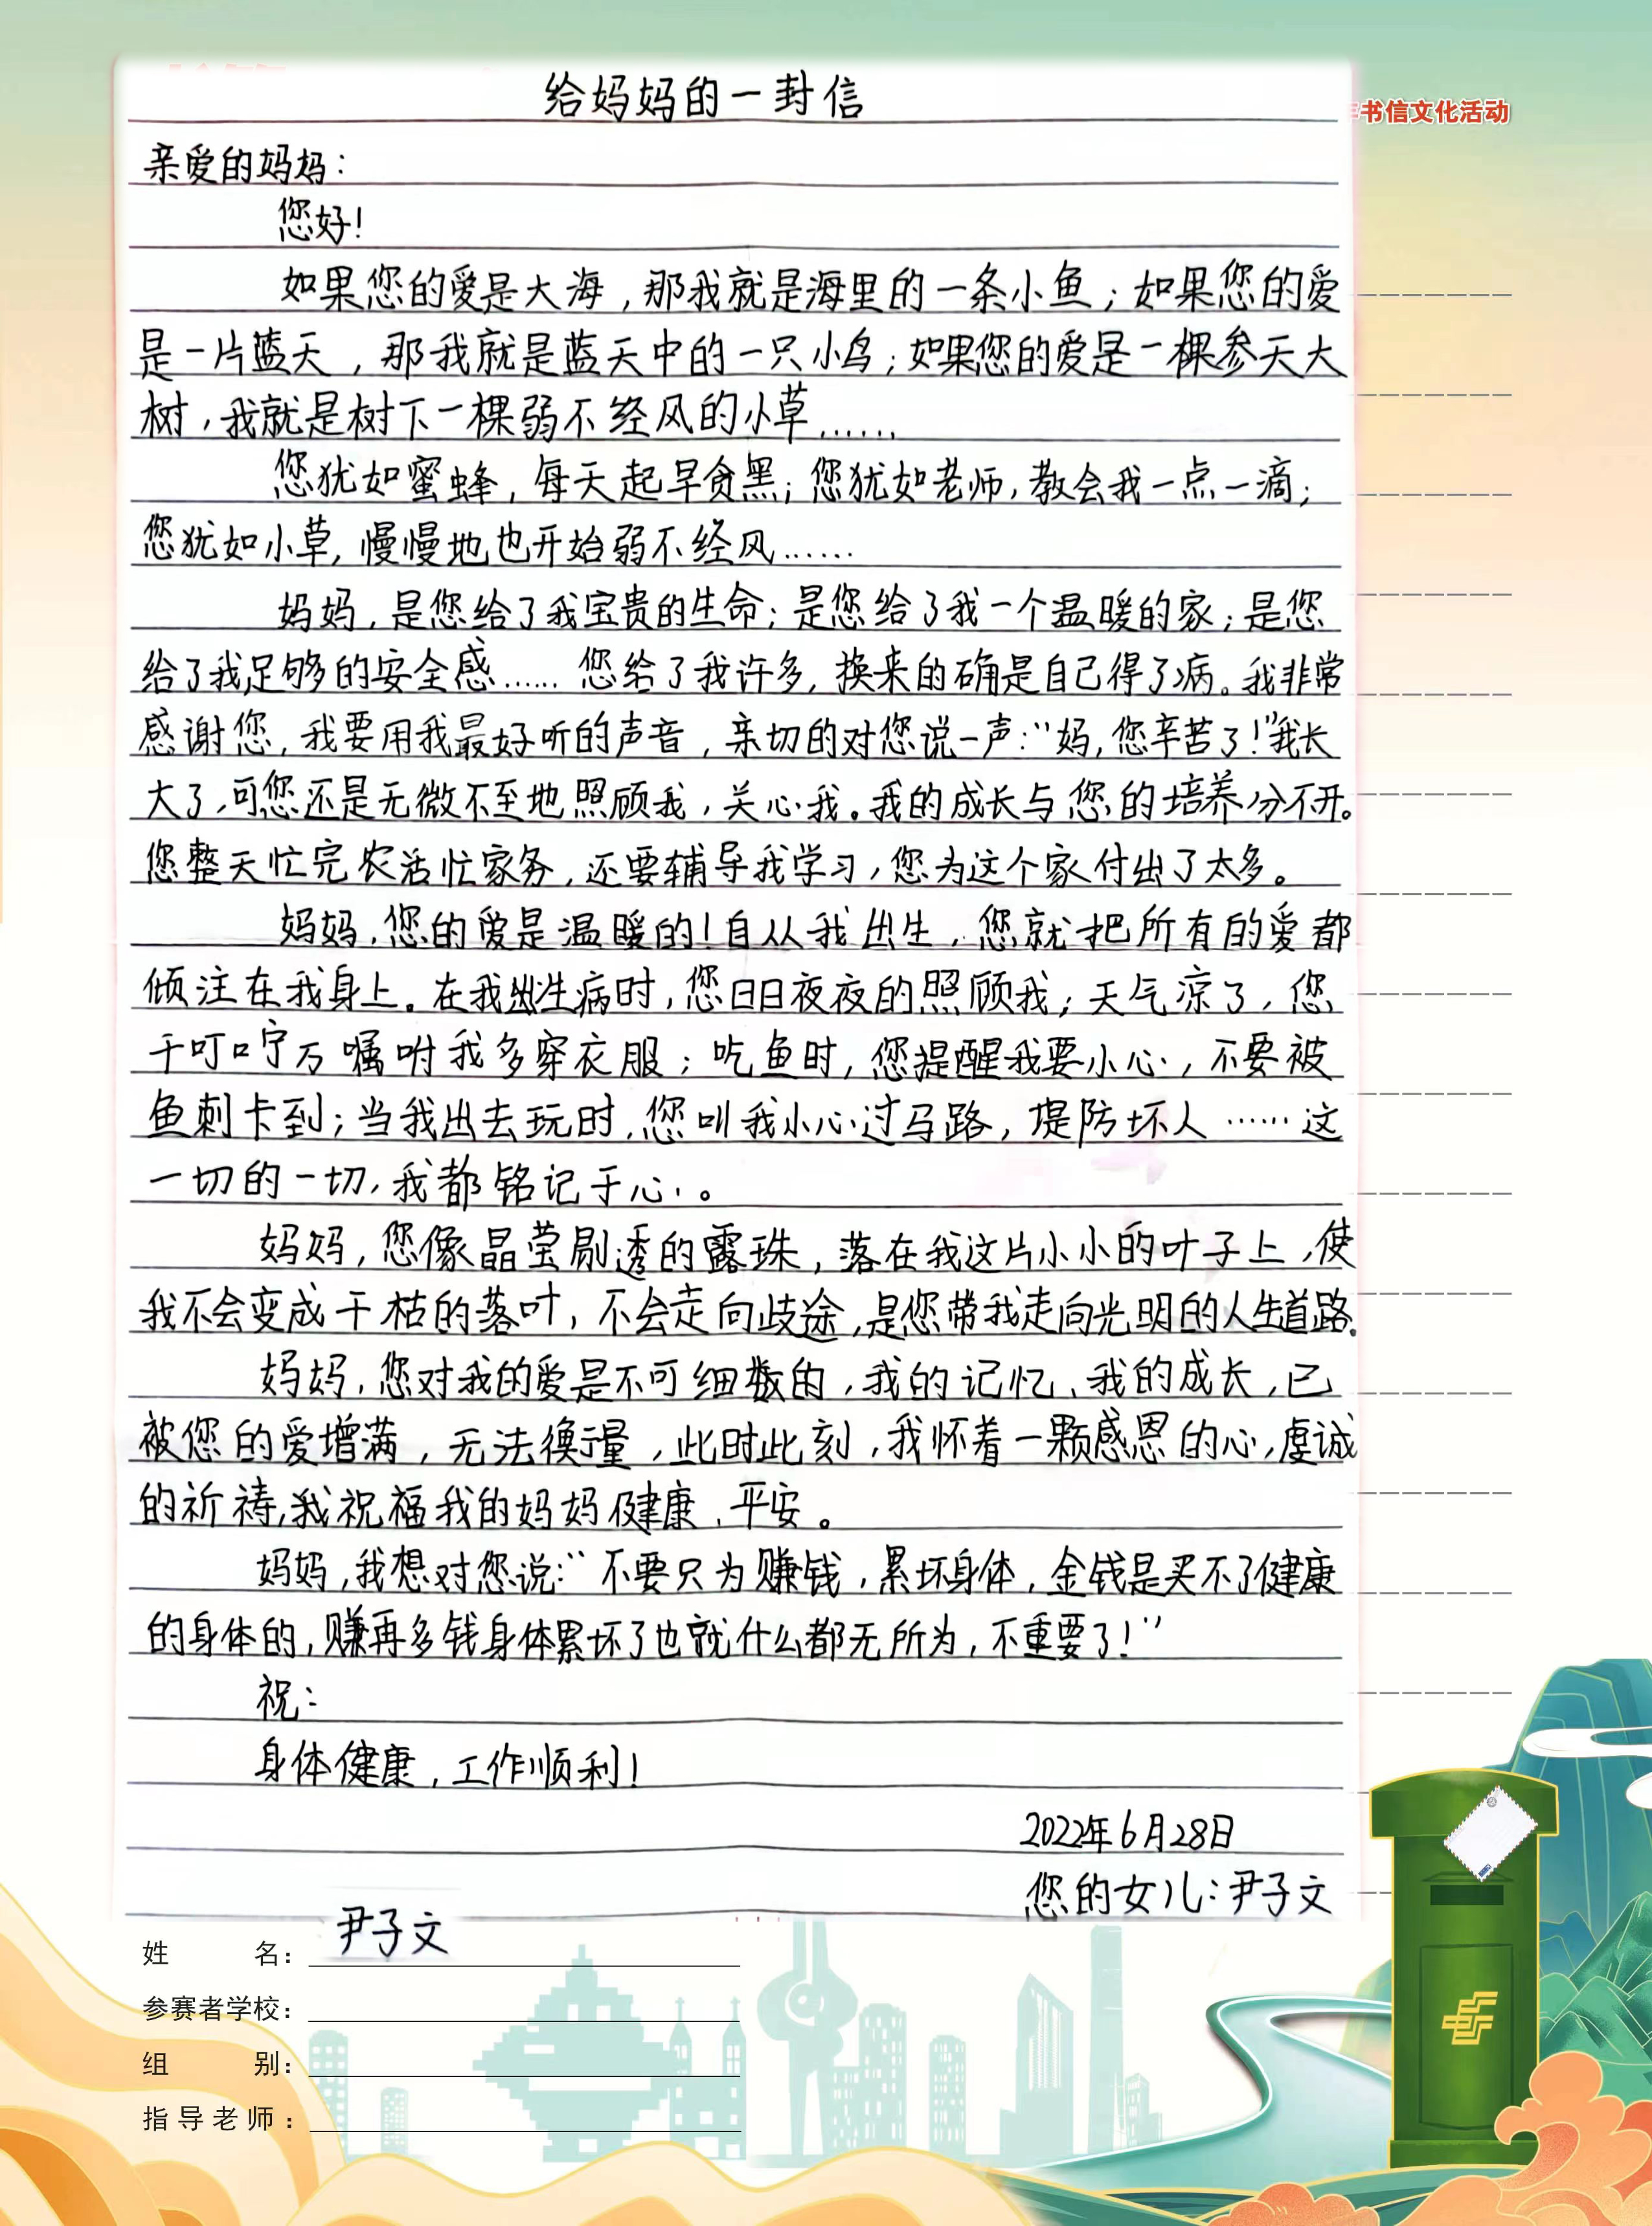 给妈妈的一封信
书信文化活动
亲爱的妈妈：
您好！
如果您的爱是大海，那我就是海里的一条小鱼；如果您的爱
是一片蓝天，那我就是蓝天中的一只小鸟；如果您的爱是一棵参天大
树，我就是树下一棵弱不经风的小草……
您犹如蜜蜂，每天起早贪黑；您犹如老师，教会我一点一滴；
您犹如小草，慢慢地也开始弱不经风……
妈妈，是您给了我宝贵的生命；是您给了我一个温暖的家；是您
给了我足够的安全感……您给了我许多，换来的确是自己得了病。我非常
感谢您，我要用我最好听的声音，亲切的对您说一声：“妈，您辛苦了！”我长
大了，可您还是无微不至地照顾我，关心我。我的成长与您的培养分不开。
您整天忙完农活忙家务，还要辅导我学习，您为这个家付出了太多。
妈妈，您的爱是温暖的！自从我出生，您就把所有的爱都
倾注在我身上。在我出生病时，您日日夜夜的照顾我；天气凉了，您
千叮咛万嘱咐我多穿衣服；吃鱼时，您提醒我要小心，不要被
鱼刺卡到；当我出去玩时，您叫我小心过马路，堤防坏人……这
一切的一切，我都铭记于心。
妈妈，您像晶莹剔透的露珠，落在我这片小小的叶子上，使
我不会变成干枯的落叶，不会走向歧途，是您带我走向光明的人生道路。
妈妈，您对我的爱是不可细数的，我的记忆、我的成长，已
被您的爱增满，无法衡量，此时此刻，我怀着一颗感恩的心，虔诚
的祈祷，我祝福我的妈妈健康、平安。
妈妈，我想对您说：“不要只为赚钱，累坏身体，金钱是买不了健康
的身体的，赚再多钱身体累坏了也就什么都无所为，不重要了！”
祝：
身体健康，工作顺利！
2022年6月28日
您的女儿：尹子文
姓 名：尹子文
参赛者学校：
组 别：
指导老师：